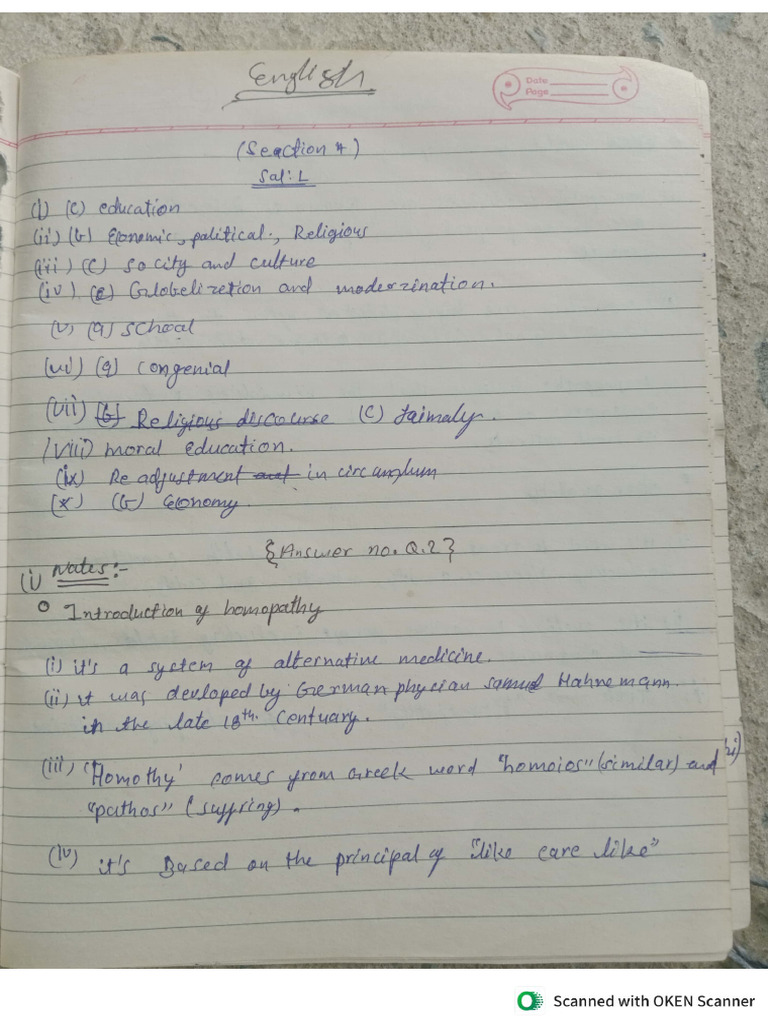 English
Date
Page
(Seaction A)
Sol: 1
(i) (c) education
(ii) (b) Economic, palitical., Religious
(iii) (c) so city and culture
(iv) (c) Globelizetion and moderzination.
(v) (a) school
(vi) (a) congenial
(vii) (b) Religious discourse (c) faimaly.
(viii) moral education.
(ix) Re adjustment in
(x) (b) Economy.
{Answer no. Q.2}
(i) Notes:-
Introduction of homopathy
(i) it's a system of alternative medicine.
(ii) it was devloped by German phycian Samuel Hahnemann.
in the late 18th. Centuary.
(iii) 'Homothy' comes from Greek word "homoios" (similar) and
"pathos" (suffring).
(iv) it's Based on the principal of "like care like"
Scanned with OKEN Scanner